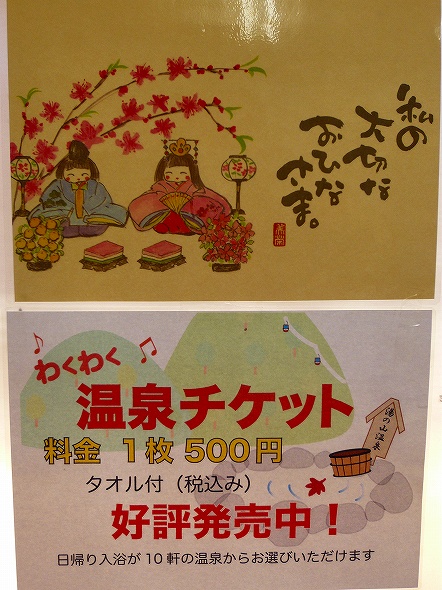 私の
大切な
おひな
さま。
わくわく
温泉チケット
料金 1枚 500円
タオル付（税込み）
湯の山温泉
好評発売中！
日帰り入浴が10軒の温泉からお選びいただけます